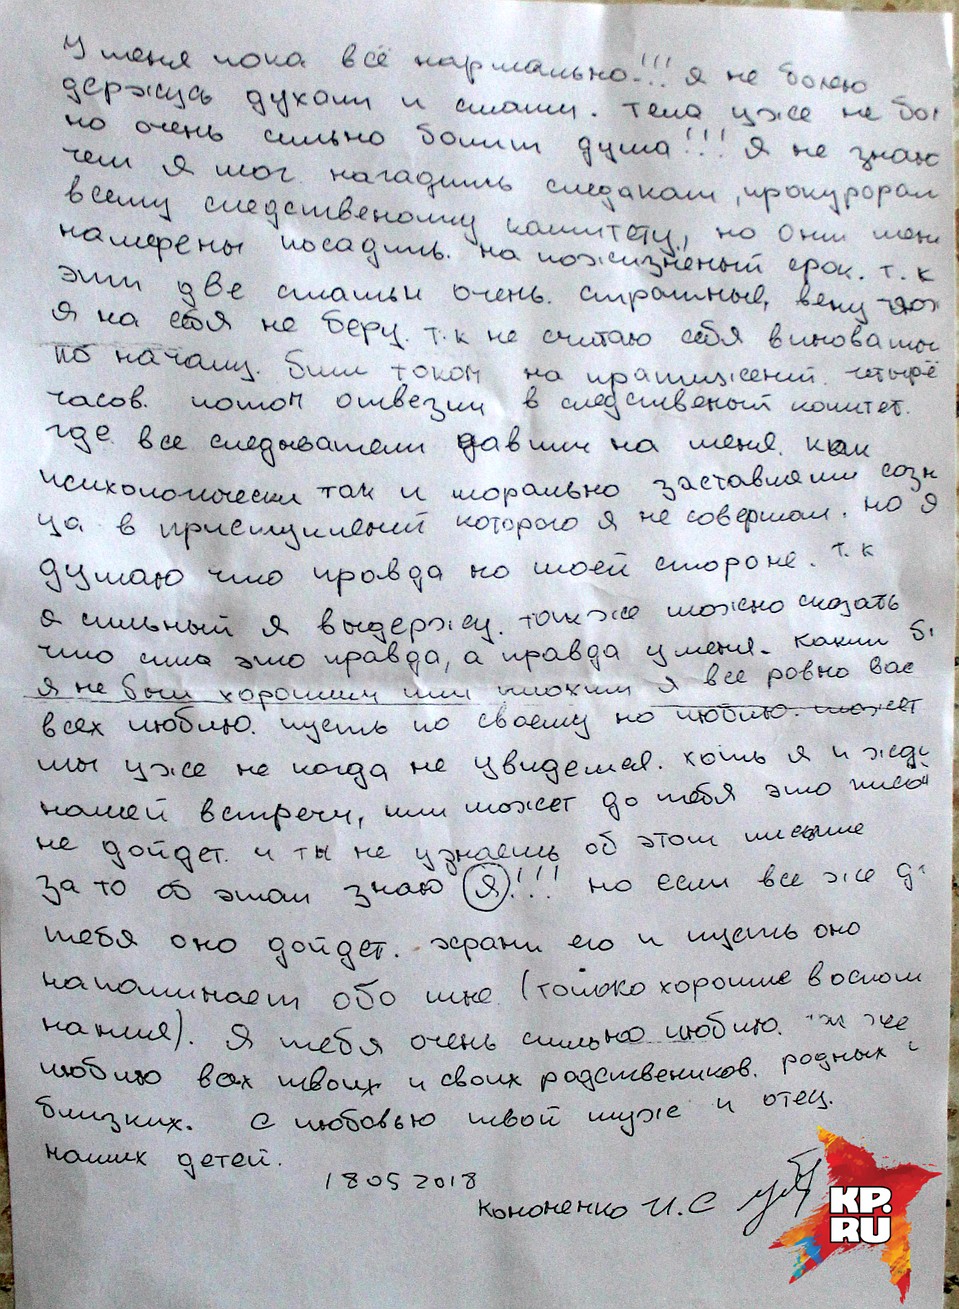 У меня пока всё нармально!!! я не болею
держусь духом и смаши. тела уже не бол
но очень сильно болит душа!!! Я не знаю
чем я мог нагадить следакам, прокурорам
всему следственому камитету, но они мен
намерены посадить. на пожизненый срок. т.к
эти две статьи очень. страшные, вену
я на себя не беру. т.к не считаю себя виноваты
по началу. били током на пратижений четырё
часов. потом отвезли в следственый комитет.
где. все следыватели давили на меня. как
психологически так и морально заставляли созн
ца в приступлений которого я не совершал. но я
думаю что правда на моей стороне. т.к
я сильный я выдержу. также можно сказать
что сила это правда, а правда у меня. каким б
я не был хорошим или плохим я все ровно вас
всех люблю. пусть по своему но люблю. может
мы уже не когда не увидемся. хоть я и жд
нашей встречи, или может до тебя это письм
не дойдет. и ты не узнаешь об этом письме
за то об этом знаю я!!! но если все же д
тебя оно дойдет. храни его и пусть оно
напоминает обо мне (только хорошие воспом
нания). Я тебя очень сильно люблю. же
люблю всех твоих и своих радствеников. родных и
близких. с любовью твой муж и отец.
наших детей.
18 05 2018
Кононенко И.С
KP.
RU